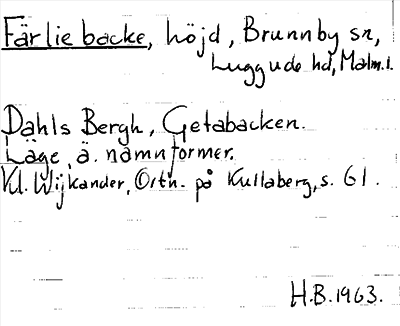 Färlie backe, höjd, Brunnby sn,
Luggude hd, Malm. l.
Dahls Bergh, Getabacken.
Läge, ä. namnformer.
Kl. Wijkander, Ortn. på Kullaberg, s. 61.
H.B. 1963.